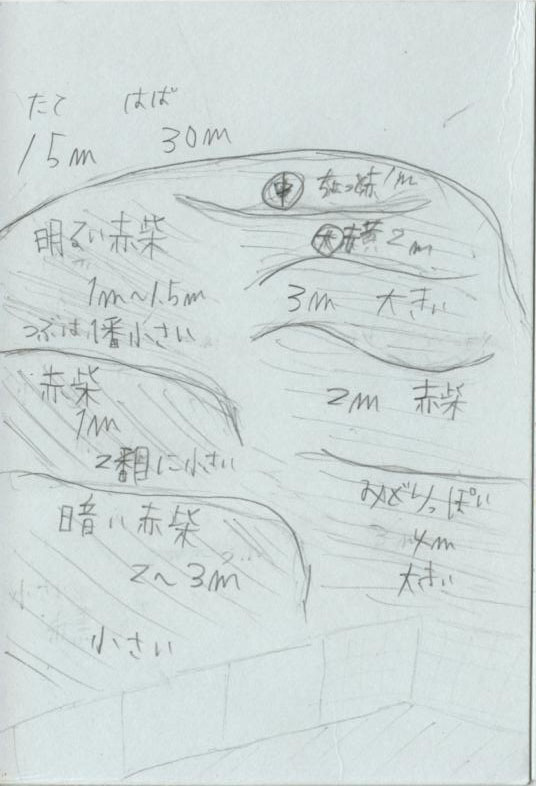 たて はば
15m 30m
中 ちょっと赤 1m
大 横 2m
明るい赤柴
1m~1.5m
つぶは1番小さい
3m 大きい
赤柴
1m
2番目に小さい
2m 赤柴
暗い赤柴
2~3m
小さい
みどりっぽい
4m
大きい